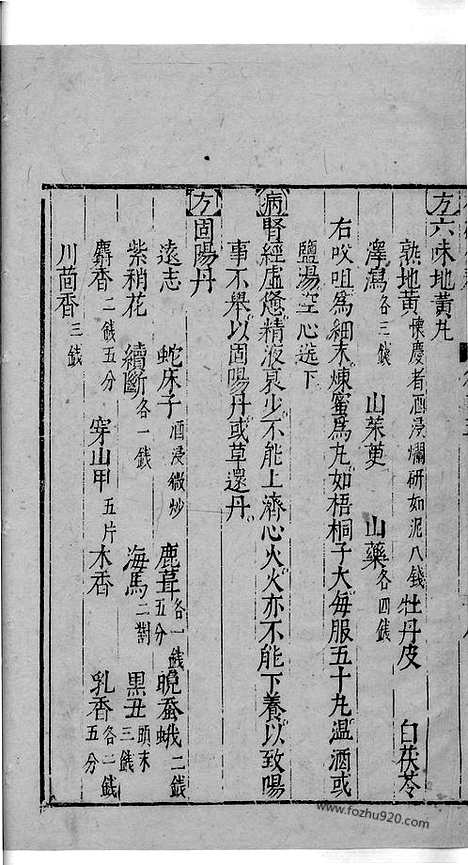 方六味地黃丸
熟地黃懷慶者酒浸爛研如泥八錢 牡丹皮 白茯苓
澤瀉各三錢 山茱萸 山藥各四錢
右㕮咀為細末煉蜜為丸如梧桐子大每服五十丸溫酒或
鹽湯空心送下
病腎經虛憊精液衰少不能上濟心火火亦不能下養以致陽
事不舉以固陽丹或草還丹
方固陽丹
遠志 蛇床子酒浸微炒 鹿茸各一錢五分 晚蚕蛾二錢
紫稍花 續斷各一錢 海馬二對 黑丑頭末三錢
麝香二錢五分 穿山甲五片 木香 乳香各二錢五分
川茴香三錢
www.fozhu920.com